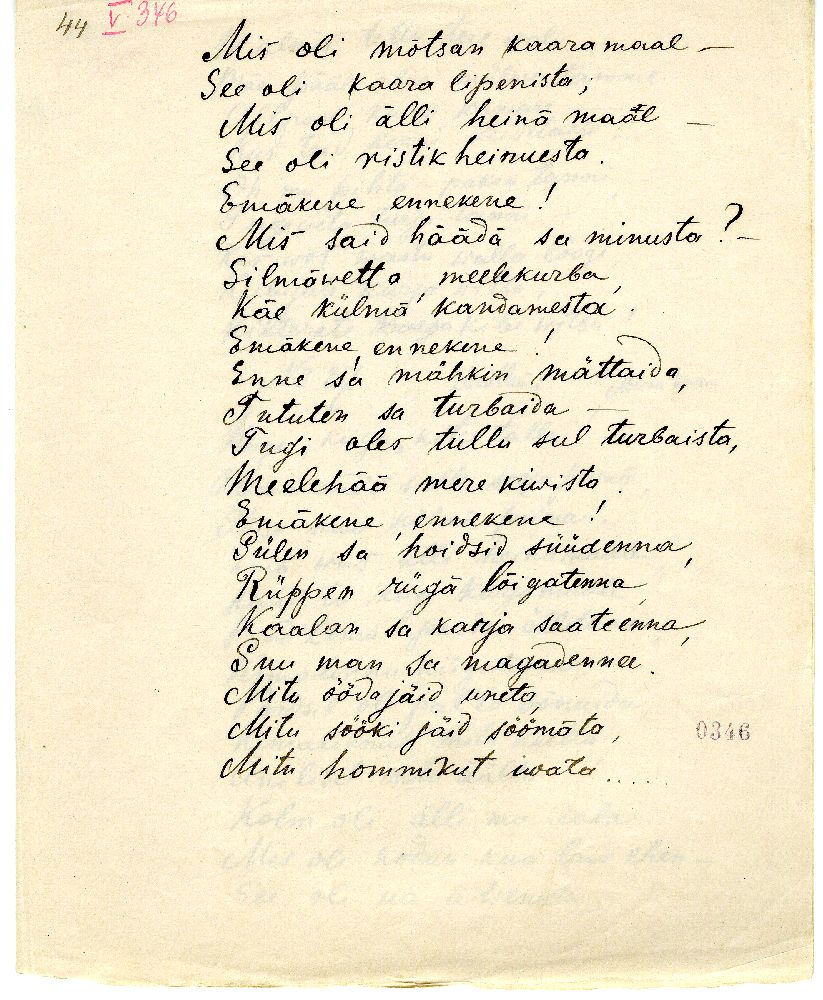 44 V 346
Mis oli mõtsan kaaramaal —
See oli kaara lipenista,
Mis oli älli heinä maal —
See oli ristikheinuesta.
Emäkene, ennekene!
Mis said häädä sa minusta? —
Silmäwettä, meelekurba,
Käe külmä kandamesta.
Emäkene, ennekene!
Enne sa mähkin mättaida,
Tututen sa turbaida —
Tugi oles tullu sul turbaista,
Meelehää mere kiwista.
Emäkene, ennekene!
Sülen sa hoidsid süüdenna,
Rüppen rügä lõigatenna,
Kaalan sa karja saateenna,
Suu man sa magadenna.
Mitu ööda jäid uneta
Mitu sööki jäid söömäta,
Mitu hommikut iwata .....
0346